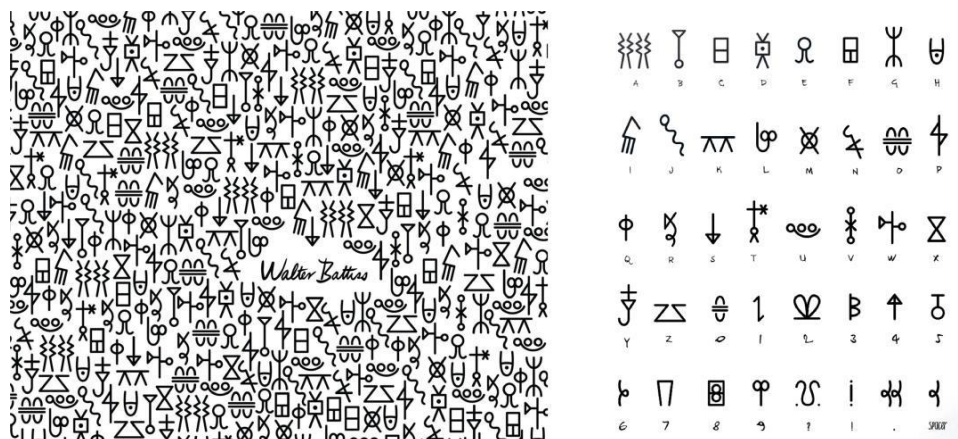 Walter Battiss
A B C D E F G H
I J K L M N O P
Q R S T U V W X
Y Z 0 1 2 3 4 5
6 7 8 9 ? ! .